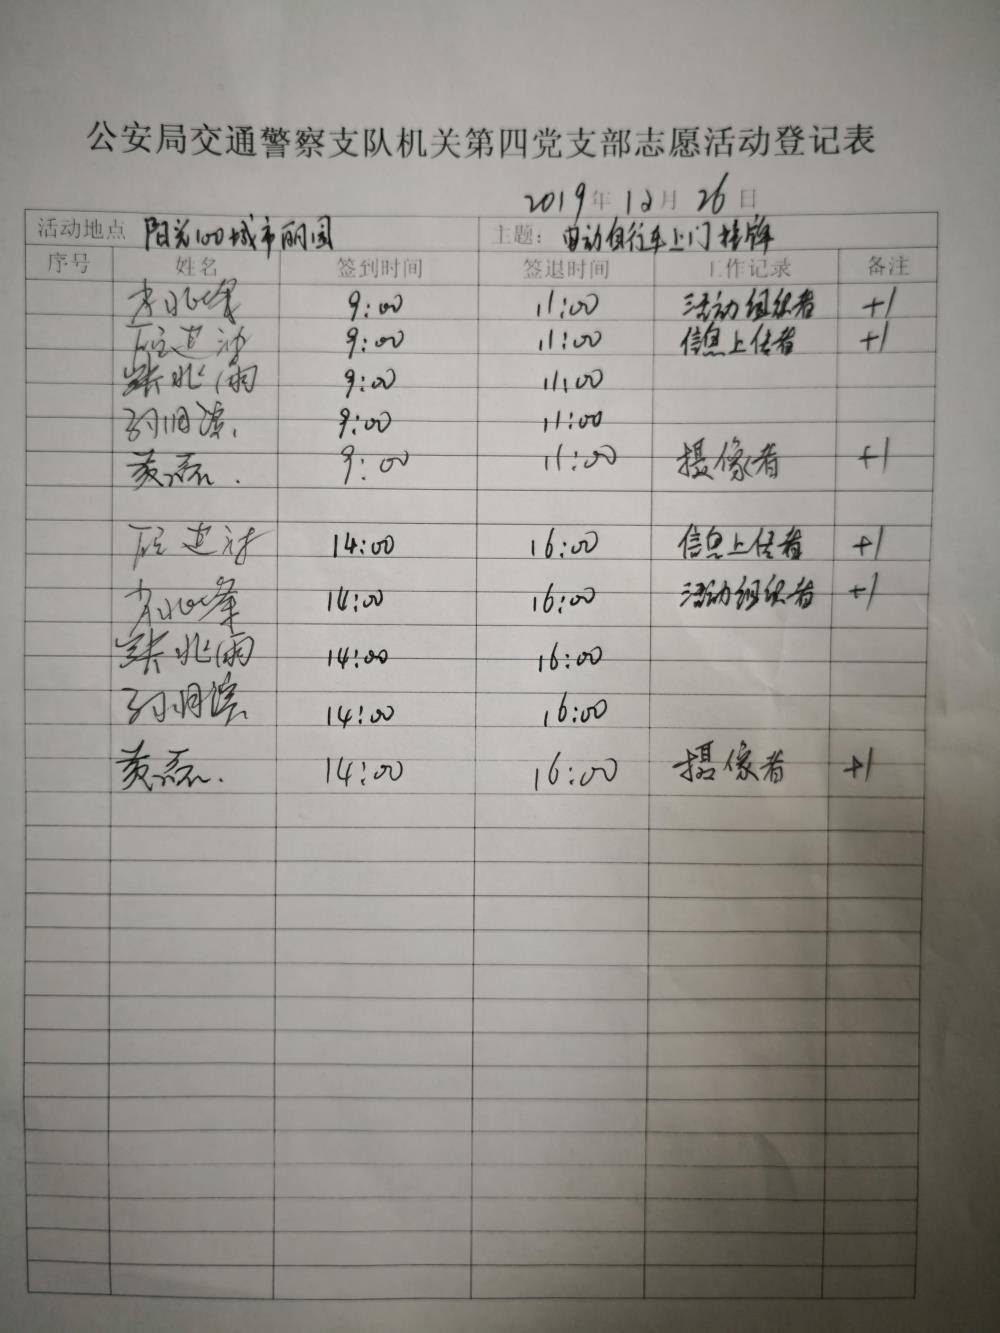 公安局交通警察支队机关第四党支部志愿活动登记表
2019年12月26日
活动地点 阳光100城市丽园 主题：电动自行车上门挂牌
序号 姓名 签到时间 签退时间 工作记录 备注
9:00 11:00 活动组织者 +1
9:00 11:00 信息上传者 +1
9:00 11:00
9:00 11:00
黄磊 9:00 11:00 摄像者 +1
14:00 16:00 信息上传者 +1
14:00 16:00 活动组织者 +1
14:00 16:00
14:00 16:00
黄磊 14:00 16:00 摄像者 +1